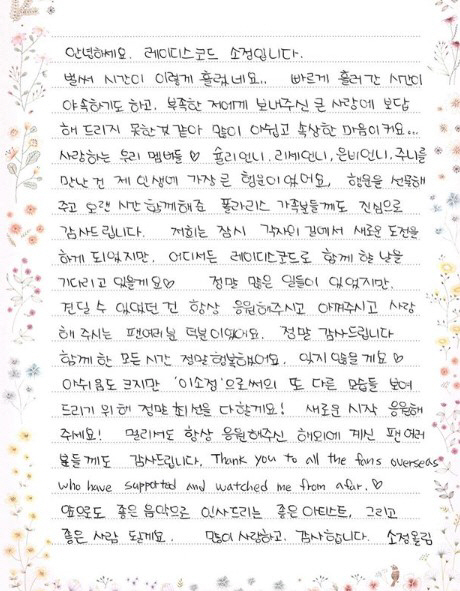 안녕하세요. 레이디스코드 소정입니다.
벌써 시간이 이렇게 흘렀네요.. 빠르게 흘러간 시간이
야속하기도 하고, 부족한 저에게 보내주신 큰 사랑에 보답
해 드리지 못한것 같아 많이 아쉽고 속상한 마음이 커요...
사랑하는 우리 멤버들 ♡ 슐리언니, 리세언니, 은비언니, 주니를
만난 건 제 인생에 가장 큰 행운이었어요, 행운을 선물해
주고 오랜 시간 함께해준 폴라리스 가족분들께도 진심으로
감사드립니다. 저희는 잠시 각자의 길에서 새로운 도전을
하게 되었지만, 어디서든 레이디스코드로 함께 할 날을
기다리고 있을게요♡ 정말 많은 일들이 있었지만,
견딜 수 있었던 건 항상 응원해주시고 아껴주시고 사랑
해 주시는 팬여러분 덕분이었어요. 정말 감사드립니다
함께 한 모든 시간 정말 행복했어요. 잊지 않을게요 ♡
아쉬움도 크지만 '이소정'으로써의 또 다른 모습들 보여
드리기 위해 정말 최선을 다할게요! 새로운 시작 응원해
주세요! 멀리서도 항상 응원해주신 해외에 계신 팬 여러
분들께도 감사드립니다. Thank you to all the fans overseas
who have supported and watched me from afar.♡
앞으로도 좋은 음악으로 인사드리는 좋은 아티스트, 그리고
좋은 사람 될게요. 많이 사랑하고. 감사합니다. 소정올림